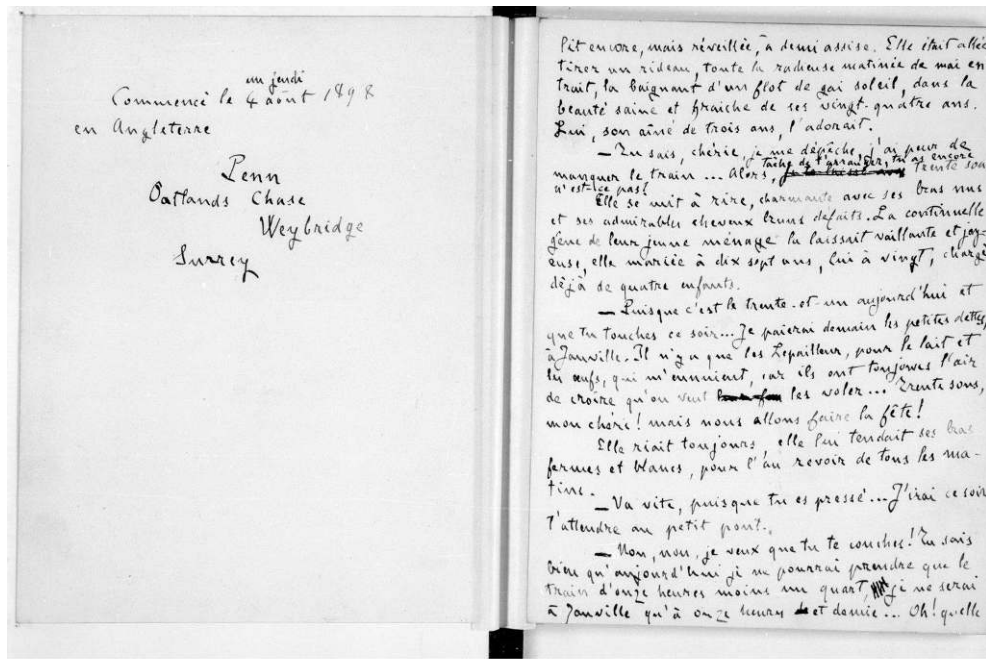 un jeudi
Commencé le 4 août 1898
en Angleterre
Penn
Oatlands Chase
Weybridge
Surrey
lit encore, mais réveillée, à demi assise. Elle était allée
tirer un rideau, toute la radieuse matinée de mai en-
trait, la baignant d'un flot de gai soleil, dans la
beauté saine et fraîche de ses vingt-quatre ans.
Lui, son aîné de trois ans, l'adorait.
— Tu sais, chérie, je me dépêche, j'ai peur de
manquer le train... Alors, tâche de t'arranger, tu as encore trente sous
n'est-ce pas?
Elle se mit à rire, charmante avec ses bras nus
et ses admirables cheveux bruns défaits. La continuelle
gêne de leur jeune ménage la laissait vaillante et joy-
euse, elle mariée à dix sept ans, lui à vingt, chargé
déjà de quatre enfants.
— Puisque c'est le trente-et-un aujourd'hui et
que tu touches ce soir... Je paierai demain les petites dettes,
à Janville. Il n'y a que les Lepailleur, pour le lait et
les œufs, qui m'ennuient, car ils ont toujours l'air
de croire qu'on veut les voler... Trente sous,
mon chéri! mais nous allons faire la fête!
Elle riait toujours, elle lui tendait ses bras
fermes et blancs, pour l'au revoir de tous les ma-
tins.
— Va vite, puisque tu es pressé... J'irai ce soir
t'attendre au petit pont.
— Non, non, je veux que tu te couches! Tu sais
bien qu'aujourd'hui si je ne pourrai prendre que le
train d'onze heures moins un quart, je ne serai
à Janville qu'à onze heures et demie... Oh! quelle